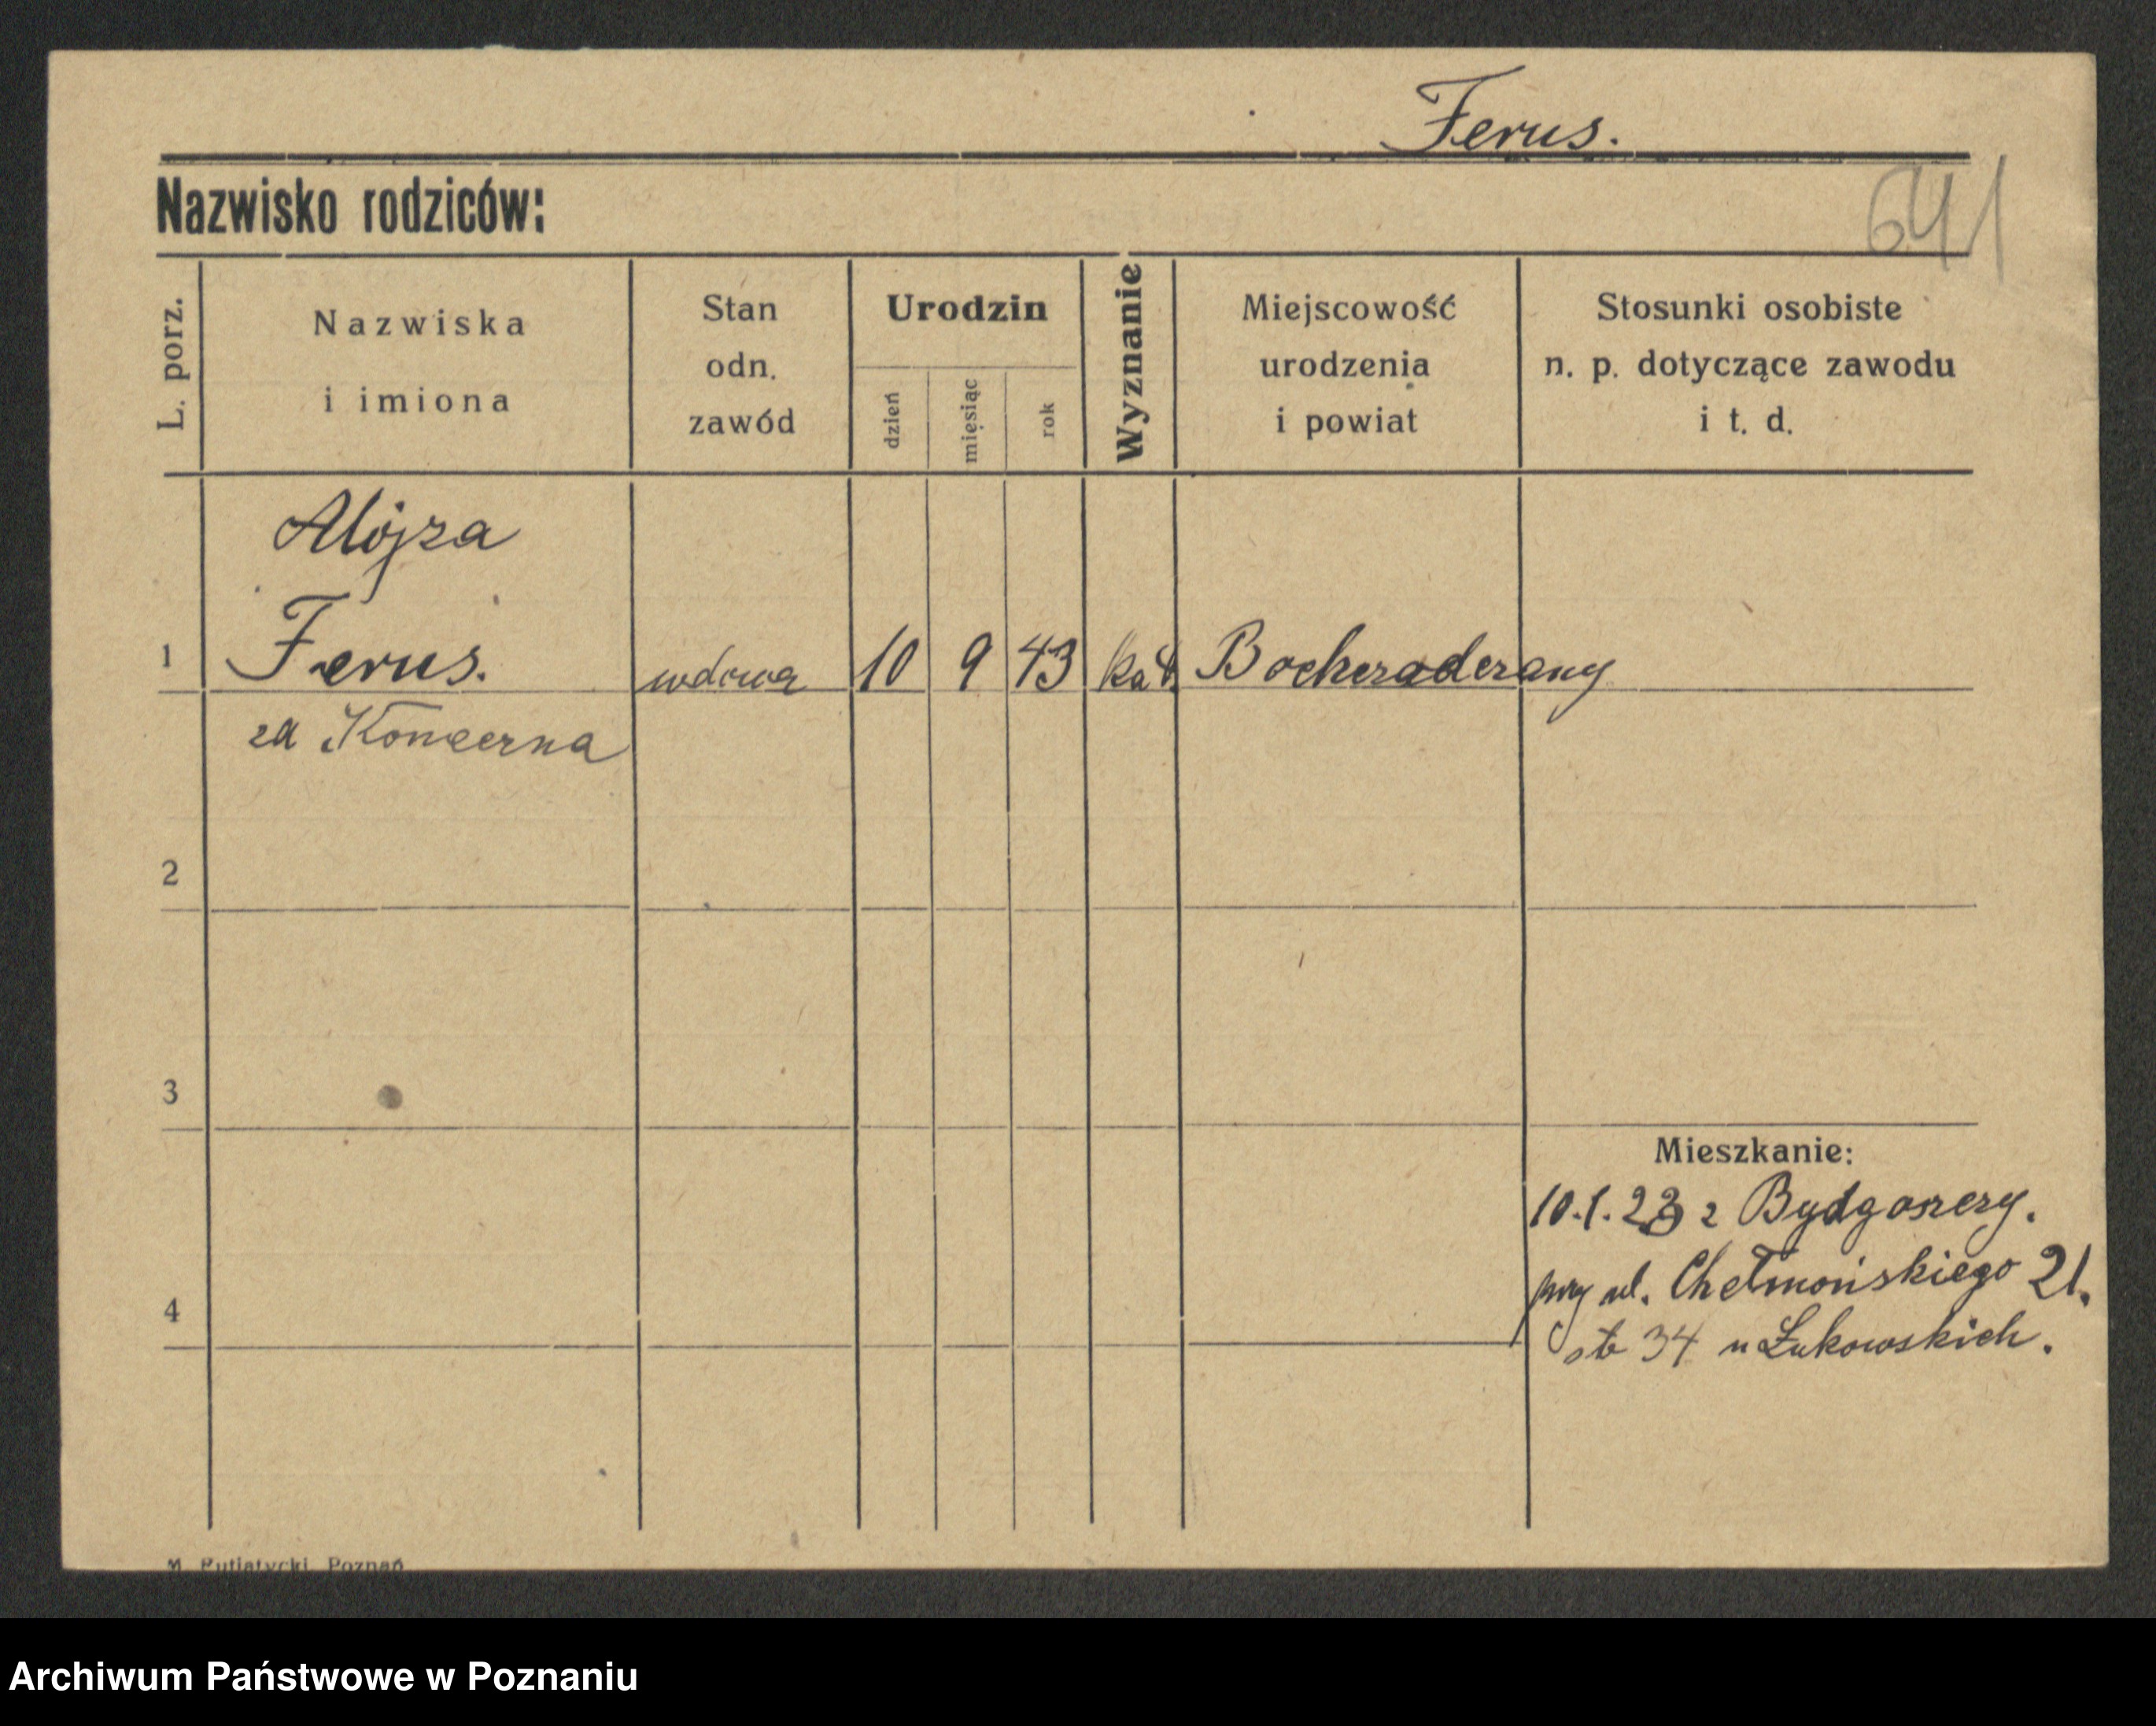 Ferus.
Nazwisko rodziców:
641
L. porz.
Nazwiska
i imiona
Stan
odn.
zawód
Urodzin
dzień
miesiąc
rok
Wyznanie
Miejscowość
urodzenia
i powiat
Stosunki osobiste
n. p. dotyczące zawodu
i t. d.
Alojza
1 Ferus. wdowa 10 9 43 kat.
za
2
3
Mieszkanie:
10.1.23 z Bydgoszczy.
przy ul. Chełmońskiego 21.
4
34 u Łukowskich.
M. Putiatycki, Poznań
Archiwum Państwowe w Poznaniu